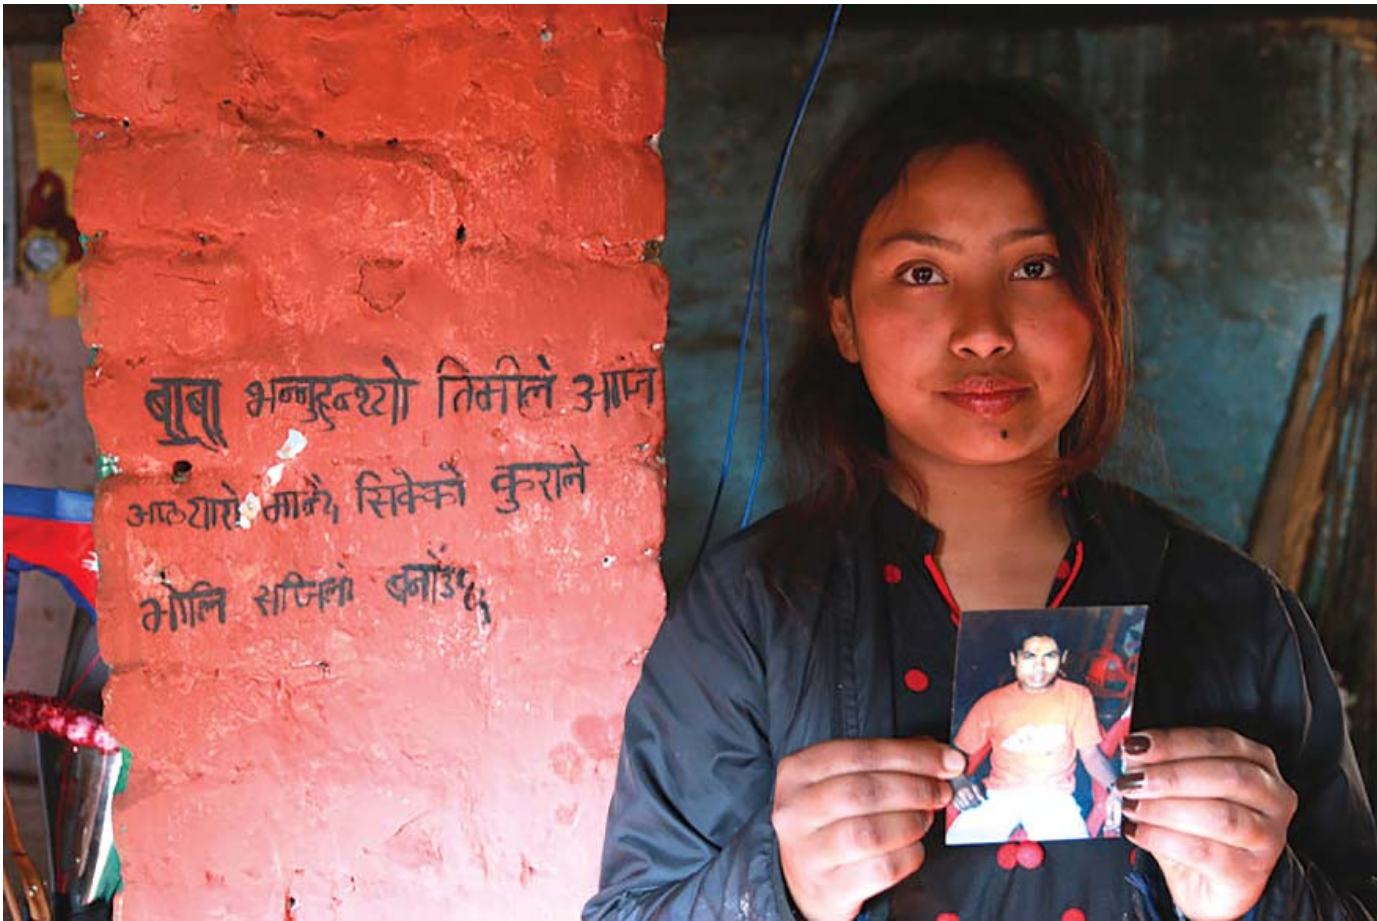 बाबा भन्नुहुन्थ्यो तिमीले आज
अप्ठ्यारो मान्दै सिकेको कुराले
भोलि सजिलो बनाउँछ